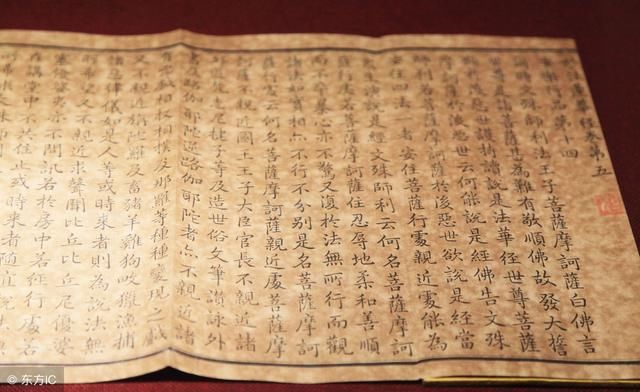 妙法蓮華經卷第五
安樂行品第十四
爾時文殊師利法王子菩薩摩訶薩白佛言
世尊是諸菩薩甚為難有敬順佛故發大誓
願於後惡世護持讀說是法華經世尊菩薩
摩訶薩於後惡世云何能說是經佛告文殊
師利若菩薩摩訶薩於後惡世欲說是經當
安住四法一者安住菩薩行處親近處能為
眾生演說是經文殊師利云何名菩薩摩訶
薩行處若菩薩摩訶薩住忍辱地柔和善順
而不卒暴心亦不驚又復於法無所行而觀
諸法如實相亦不行不分別是名菩薩摩訶
薩行處云何名菩薩摩訶薩親近處菩薩摩
訶薩不親近國王王子大臣官長不親近諸
外道梵志尼揵子等及造世俗文筆讚詠外
書及路伽耶陀逆路伽耶陀者亦不親近諸
有兇戲相扠相撲及那羅等種種變現之戲
又不親近旃陀羅及畜豬羊雞狗畋獵漁捕
諸惡律儀如是人等或時來者則為說法無
所悕望又不親近求聲聞比丘比丘尼優婆
塞優婆夷亦不問訊若於房中若經行處若
在講堂中不共住止或時來者隨宜說法
© 东方IC